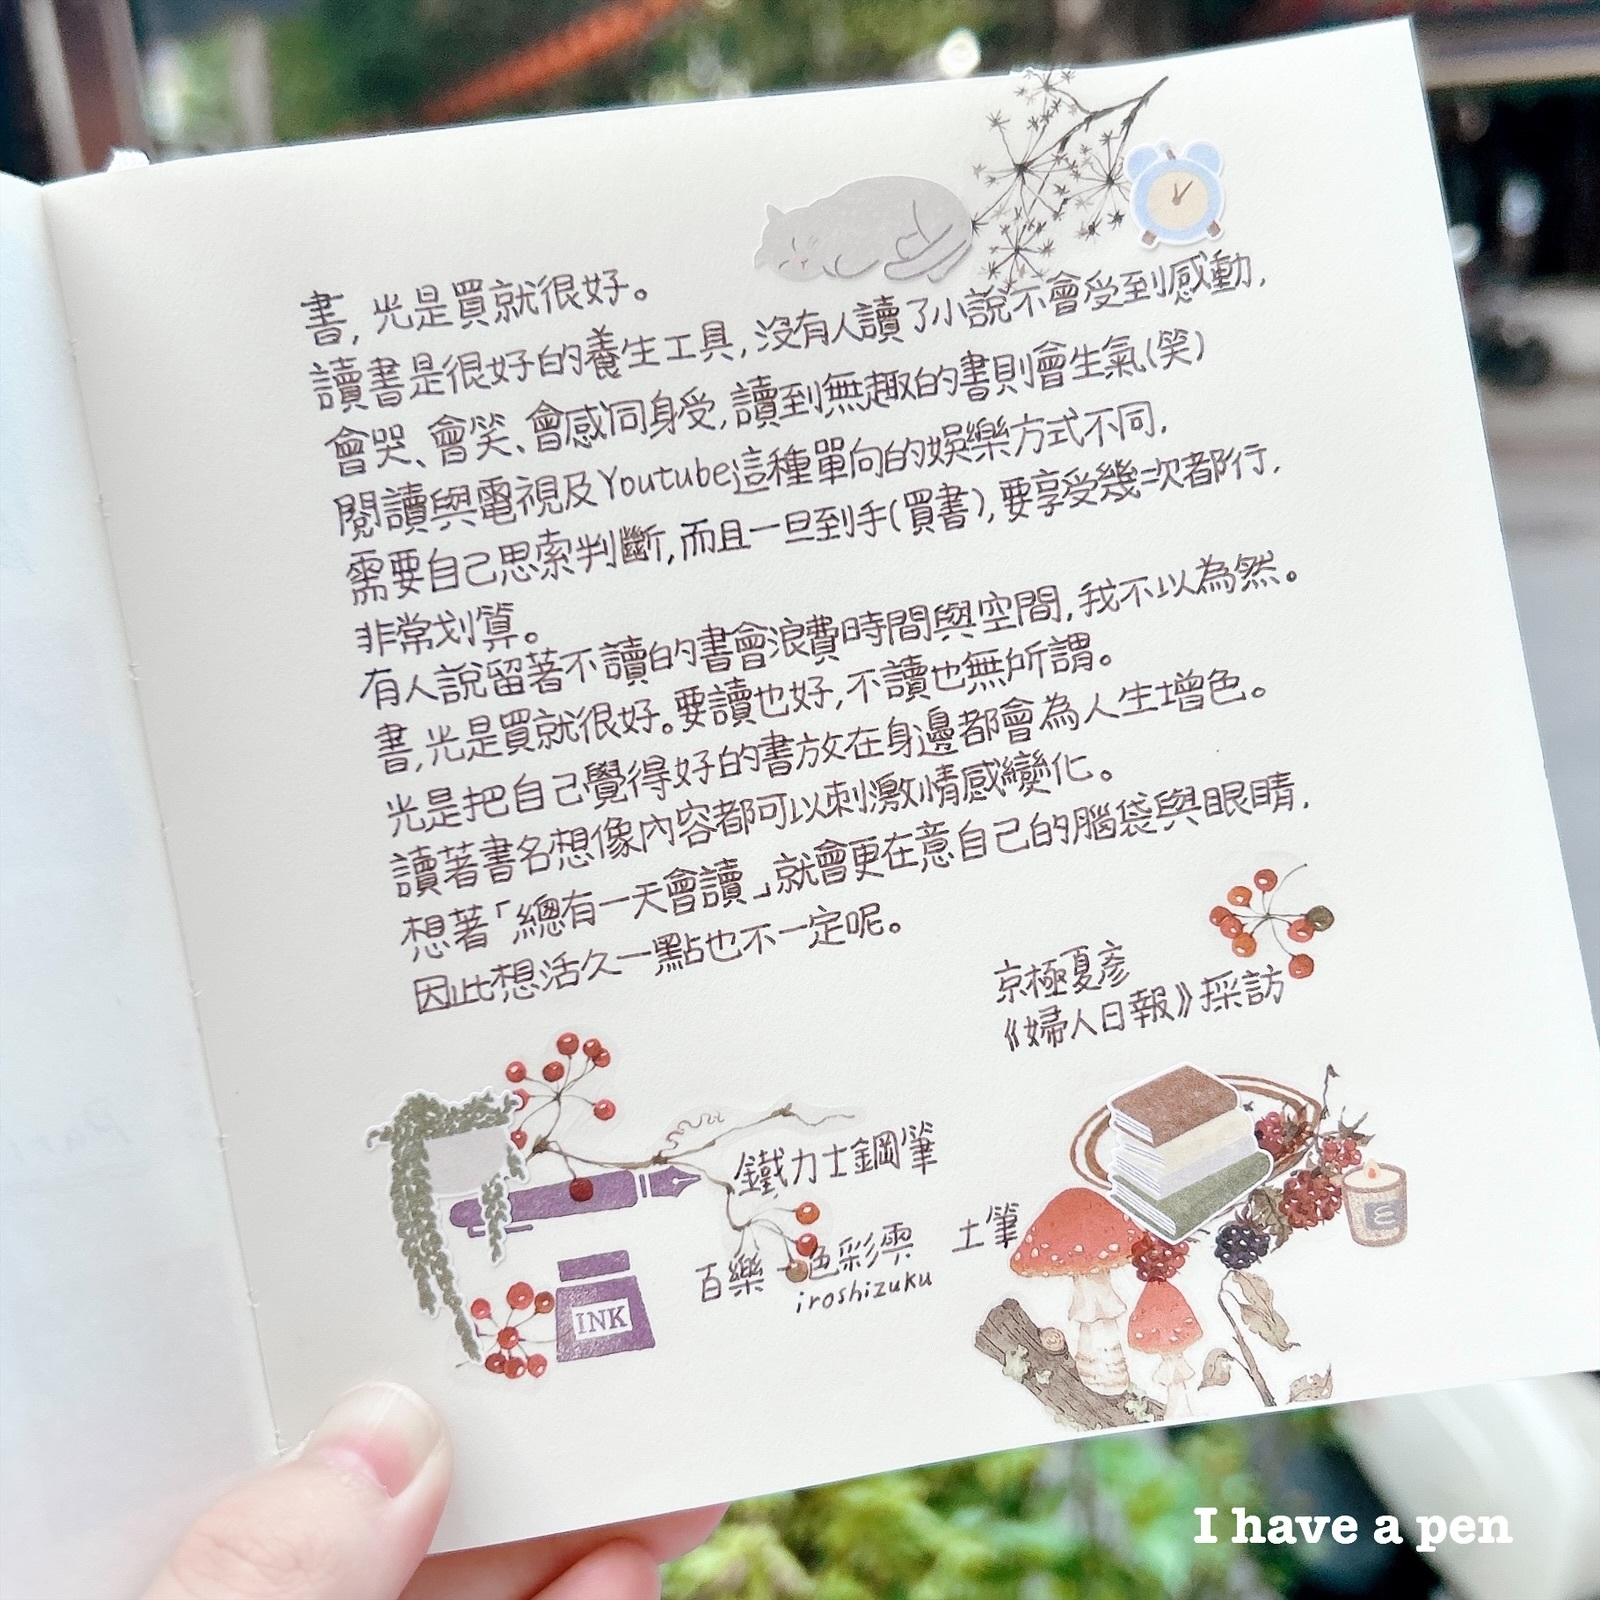 書，光是買就很好。
讀書是很好的養生工具，沒有人讀了小說不會受到感動，
會哭、會笑、會感同身受，讀到無趣的書則會生氣(笑)
閱讀與電視及Youtube這種單向的娛樂方式不同，
需要自己思索判斷，而且一旦到手(買書)，要享受幾次都行，
非常划算。
有人說留著不讀的書會浪費時間與空間，我不以為然。
書，光是買就很好。要讀也好，不讀也無所謂。
光是把自己覺得好的書放在身邊都會為人生增色。
讀著書名想像內容都可以刺激情感變化。
想著「總有一天會讀」就會更在意自己的腦袋與眼睛，
因此想活久一點也不一定呢。
京極夏彥
《婦人日報》採訪
鐵力士鋼筆
百樂 色彩雫 土筆
iroshizuku
INK
I have a pen